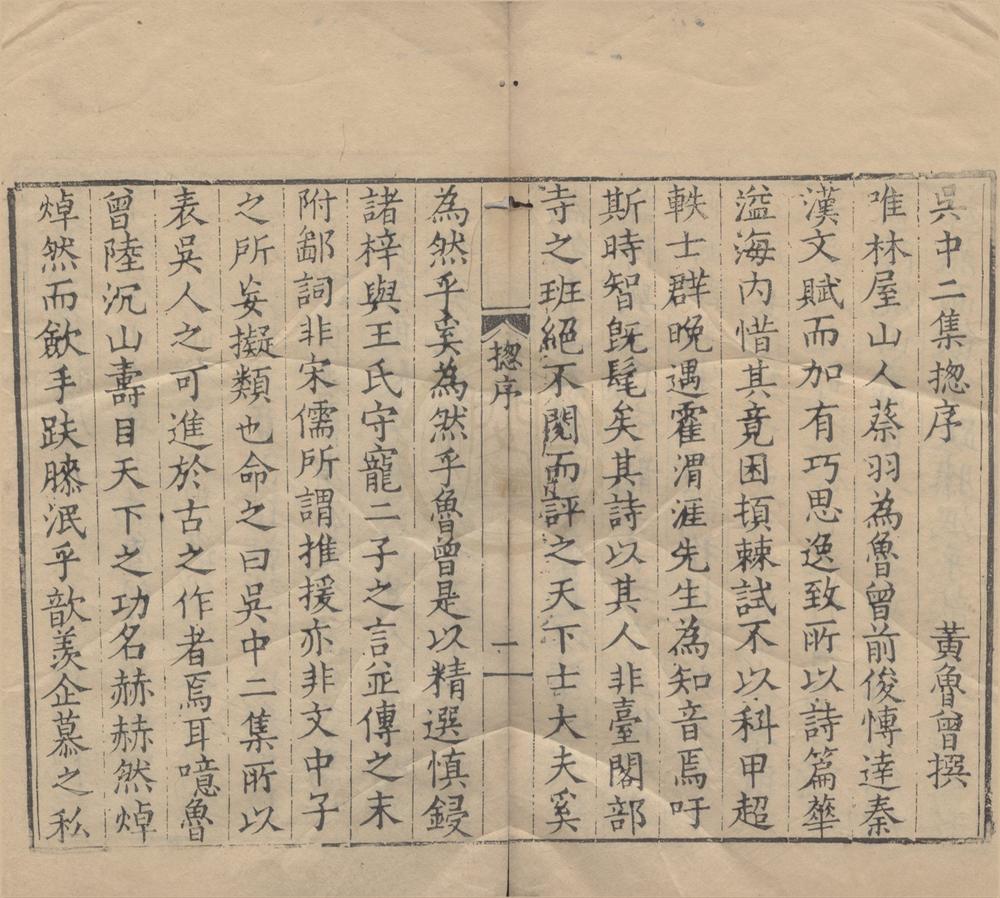 吳中二集揔序 黃魯曾撰
唯林屋山人蔡羽為魯曾前俊慱達秦
漢文賦而加有巧思逸致所以詩篇蕐
溢海內惜其竟困頓棘試不以科甲超
軼士群晚遇霍渭涯先生為知音焉吁
斯時智旣髦矣其詩以其人非臺閣部
寺之班絕不閱而評之天下士大夫奚
揔序
二
為然乎奚為然乎魯曾是以精選慎鋟
諸梓與王氏守寵二子之言並傳之末
附鄙詞非宋儒所謂推援亦非文中子
之所妄擬類也命之曰吳中二集所以
表吳人之可進於古之作者焉耳噫魯
曾陸沉山壽目天下之功名赫赫然焯
焯然而斂手趺膝泯乎歆羨企慕之私